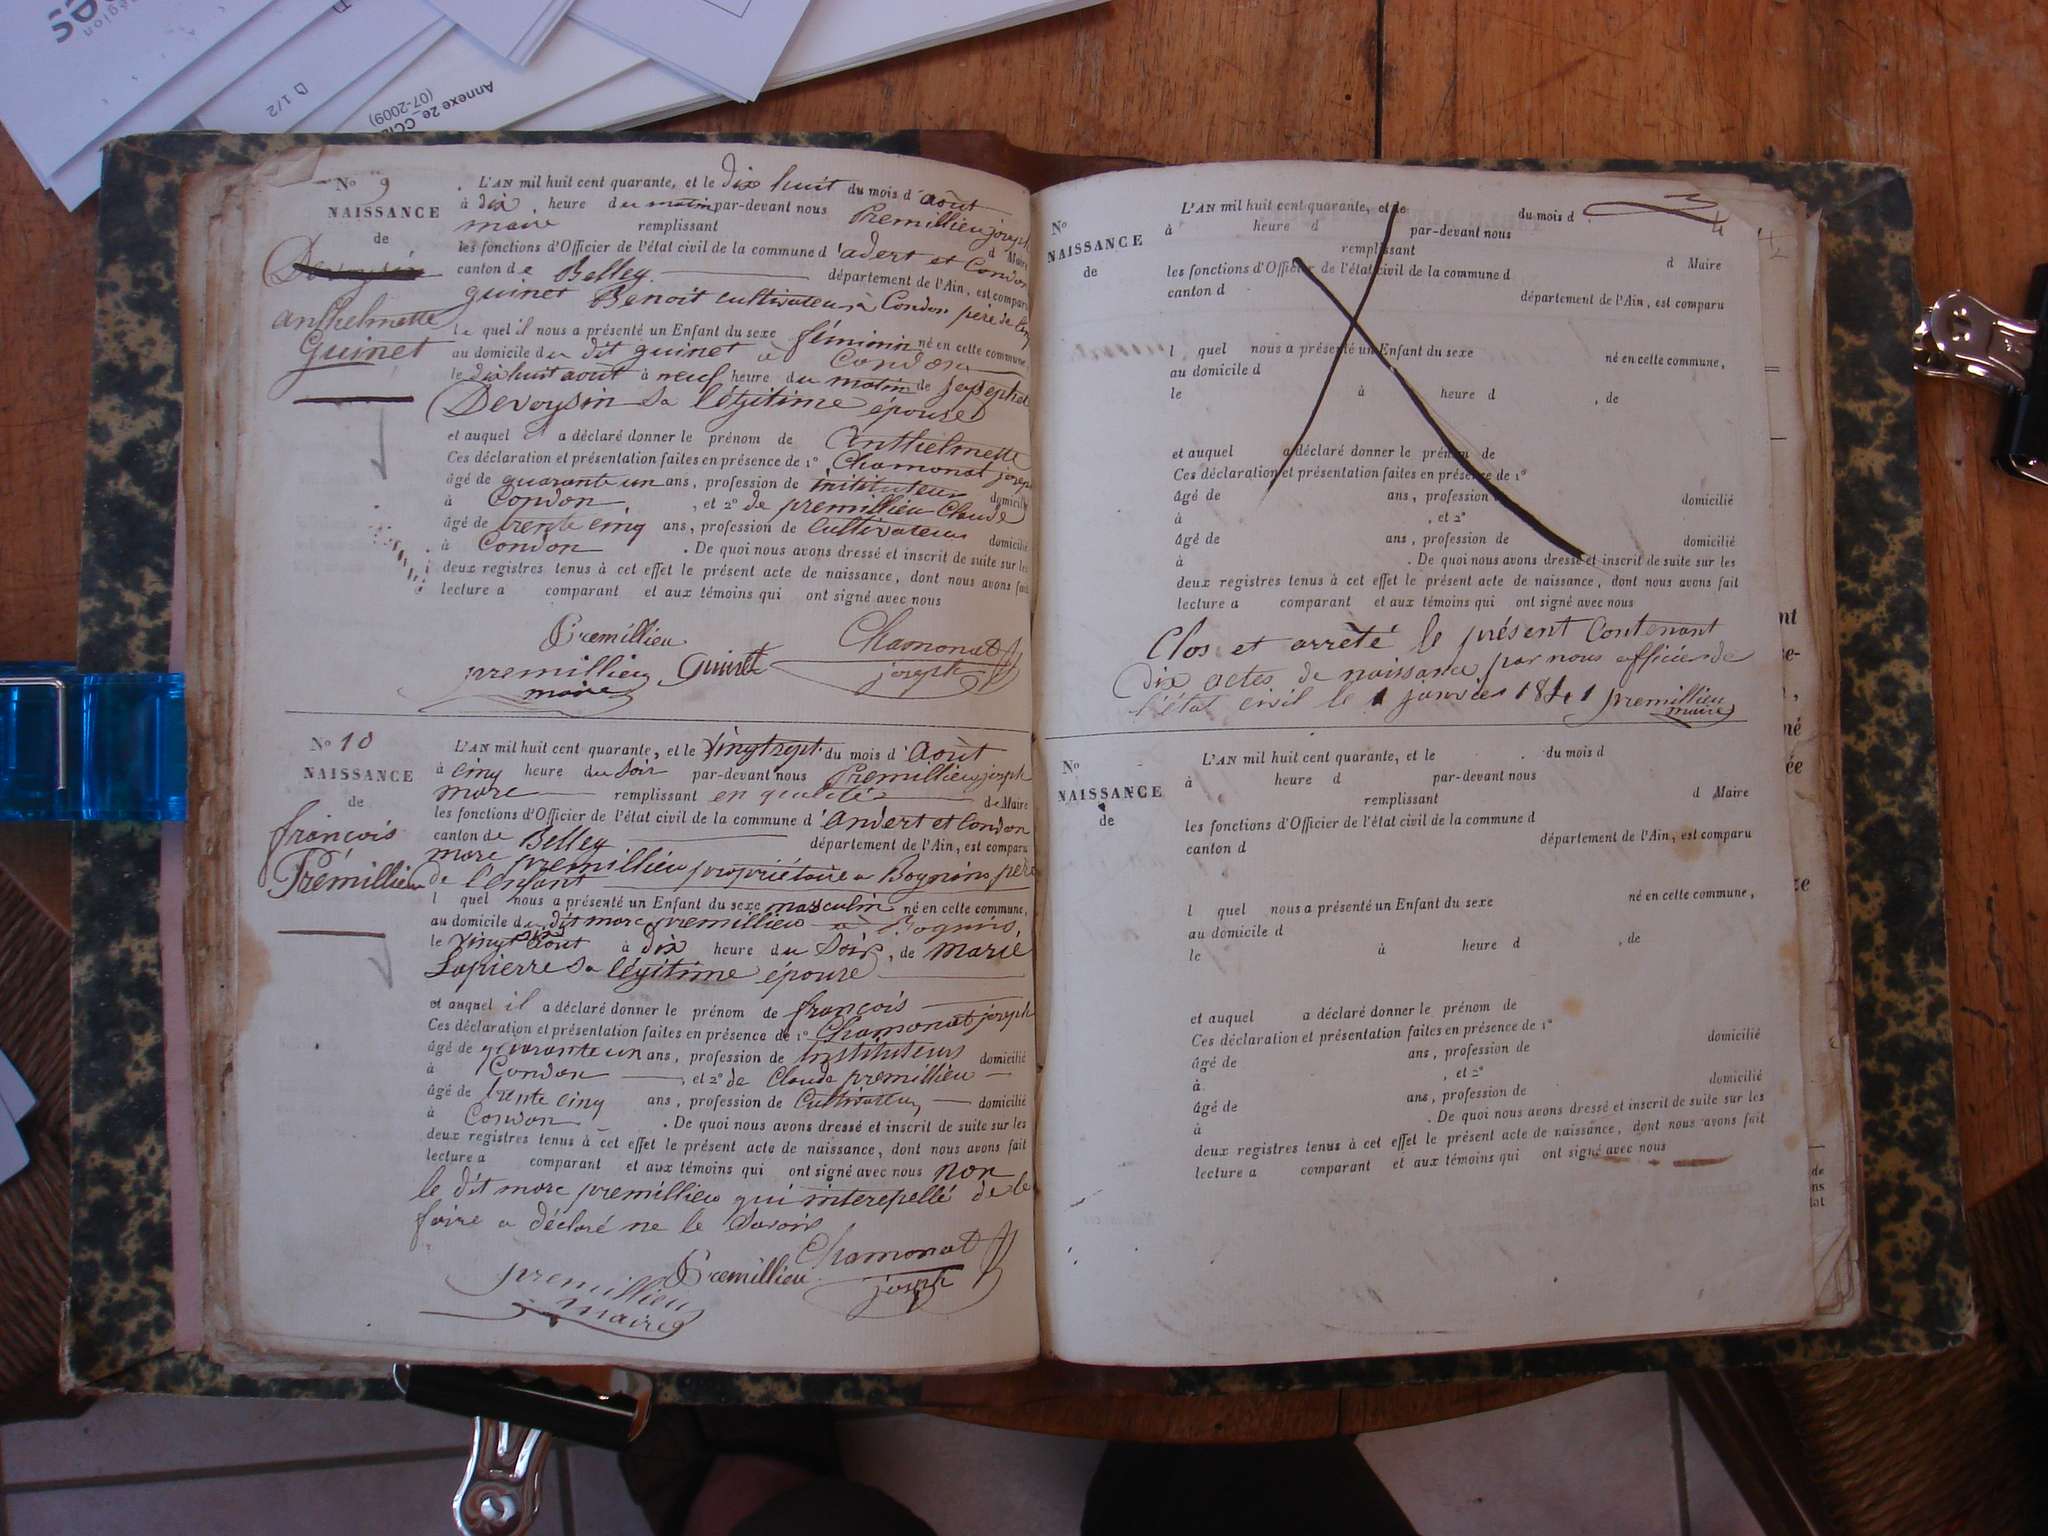 D 1/2
Annexe 2e
(07-2009)
No 9
NAISSANCE
de
anthelmette
Guinet
L'AN mil huit cent quarante, et le dix huit du mois d'août
à dix heure du matin par-devant nous Premillieu joseph
maire remplissant d Maire
les fonctions d'Officier de l'état civil de la commune d'adert et Condon
canton de Belley département de l'Ain, est comparu
guinet Benoit cultivateur à Condon père de
le quel il nous a présenté un Enfant du sexe féminin né en cette commune
au domicile du dit guinet à Condon
le dix huit août à neuf heure du matin de josephte
Devoysin sa légitime épouse
et auquel a déclaré donner le prénom de Anthelmette
Ces déclaration et présentation faites en présence de 1º Chamonat joseph
âgé de quarante un ans, profession de instituteur domicilié
à Condon, et 2º de premillieu Claude
âgé de trente cinq ans, profession de Cultivateur domicilié
à Condon. De quoi nous avons dressé et inscrit de suite sur les
deux registres tenus à cet effet le présent acte de naissance, dont nous avons fait
lecture a comparant et aux témoins qui ont signé avec nous
Premillieu Chamonat
premillieu Guinet joseph
maire
No 10
NAISSANCE
de
françois
Prémillieu
L'AN mil huit cent quarante, et le vingt sept du mois d'Août
à cinq heure du soir par-devant nous Premillieu joseph
more remplissant en qualité de Maire
les fonctions d'Officier de l'état civil de la commune d'Andert et Condon
canton de Belley département de l'Ain, est comparu
marc premillieu propriétaire a Bognins père
de l'enfant
l quel nous a présenté un Enfant du sexe masculin né en cette commune,
au domicile du dit marc premillieu à Bognins,
le vingt six Août à dix heure du soir, de marie
Lapierre sa légitime épouse
et auquel il a déclaré donner le prénom de françois
Ces déclaration et présentation faites en présence de 1º Chamonat joseph
âgé de quarante un ans, profession de instituteur domicilié
à Condon, et 2º de Claude premillieu
âgé de trente cinq ans, profession de Cultivateur domicilié
à Condon. De quoi nous avons dressé et inscrit de suite sur les
deux registres tenus à cet effet le présent acte de naissance, dont nous avons fait
lecture a comparant et aux témoins qui ont signé avec nous non
le dit marc premillieu qui interepellé de le
faire a déclaré ne le savoir
Chamonat
premillieu Premillieu joseph
maire
No
NAISSANCE
de
L'AN mil huit cent quarante, et le du mois d
à heure d par-devant nous
remplissant d Maire
les fonctions d'Officier de l'état civil de la commune d
canton d département de l'Ain, est comparu
l quel nous a présenté un Enfant du sexe né en cette commune,
au domicile d
le à heure d , de
et auquel a déclaré donner le prénom de
Ces déclaration et présentation faites en présence de 1º
âgé de ans, profession domicilié
à , et 2º
âgé de ans, profession de domicilié
à . De quoi nous avons dressé et inscrit de suite sur les
deux registres tenus à cet effet le présent acte de naissance, dont nous avons fait
lecture a comparant et aux témoins qui ont signé avec nous
Clos et arrêté le présent Contenant
Dix actes de naissance par nous officier de
l'état civil le 1 janvier 1841 premillieu
maire
No
NAISSANCE
de
L'AN mil huit cent quarante, et le du mois d
à heure d par-devant nous
remplissant d Maire
les fonctions d'Officier de l'état civil de la commune d
canton d département de l'Ain, est comparu
l quel nous a présenté un Enfant du sexe né en cette commune,
au domicile d
le à heure d , de
et auquel a déclaré donner le prénom de
Ces déclaration et présentation faites en présence de 1º
âgé de ans, profession de domicilié
à , et 2º
âgé de ans, profession de domicilié
à . De quoi nous avons dressé et inscrit de suite sur les
deux registres tenus à cet effet le présent acte de naissance, dont nous avons fait
lecture a comparant et aux témoins qui ont signé avec nous